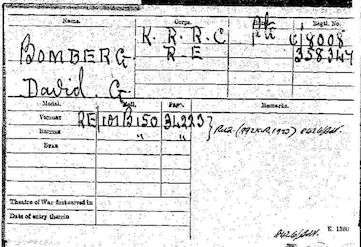 Name. Corps. Regtl. No.
BOMBERG K. R. R. C Pte 6/8008
David. G R E 358347
Medal. Roll. Page. Remarks.
VICTORY RE/101 B150 34223
BRITISH " "
STAR
Theatre of War first served in
Date of entry therein
K. 1380